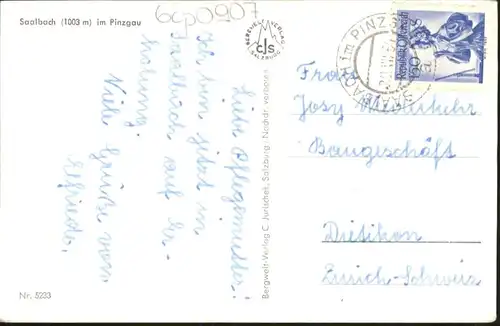 Saalbach (1003 m) im Pinzgau
6cp0907
Liebe Pflegemutter!
Ich bin jetzt in
Saalbach auf Er-
holung.
Viele Grüße von
Elfriede.
Nr. 5233
Bergwelt-Verlag C. Jurischek, Salzburg · Nachdr. verboten
BERGWELT VERLAG
cls
SALZBURG
SAALBACH im PINZGAU
Republik Österreich
Frau
Josy
Baugeschäft
Dietikon
Zürich-Schweiz